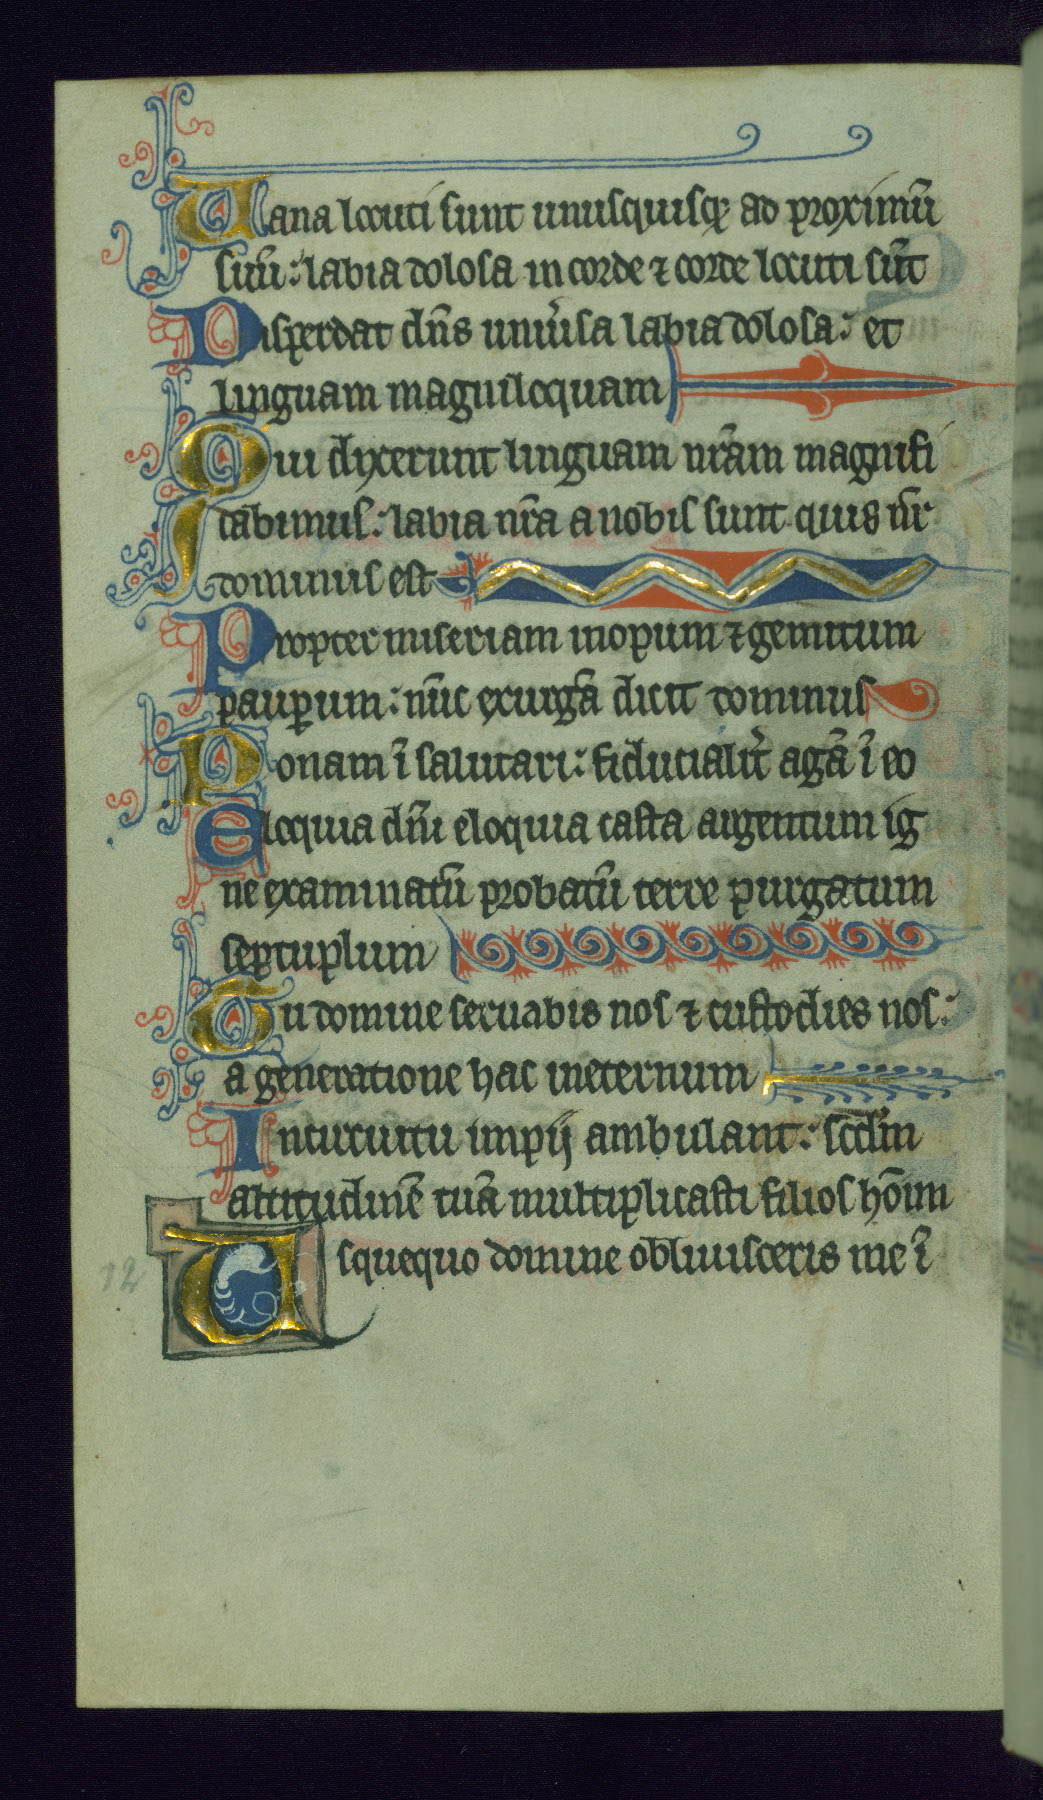 Uana locuti sunt unusquisq; ad proximū
suū: labia dolosa in corde ⁊ corde locuti sūt
Disperdat dn̄s uniu̾sa labia dolosa: et
linguam magniloquam
Qui dixerunt linguam nr̄am magnifi
cabimus: labia nr̄a a nobis sunt quis nr̄
dominus est
Propter miseriam inopum ⁊ gemitum
paup̲um: nūc exurgā dicit dominus
Ponam ī salutari: fiducialit̾ agā ī eo
Eloquia dn̄i eloquia casta argentum ig
ne examinatū probatū terre purgatum
septuplum
Tu domine seruabis nos ⁊ custodies nos:
a generatione hac ineternum
Incircuitu impij ambulant: scd̄m
altitudinē tuā multiplicasti filios hōīm
Usquequo domine obliuisceris me ī
12